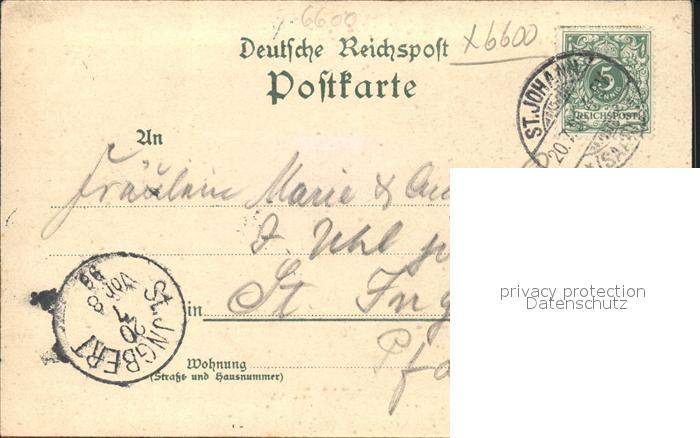 6600
Deutsche Reichspost
x6600
Postkarte
5
REICHSPOST
ST. JOHANN
20.
(SAAR)
An
Fräulein Marie &
J. Uhl
in St Ing
Pfa
Wohnung
(Straße und Hausnummer)
ST. INGBERT
20
7
Vor 8
99
privacy protection
Datenschutz